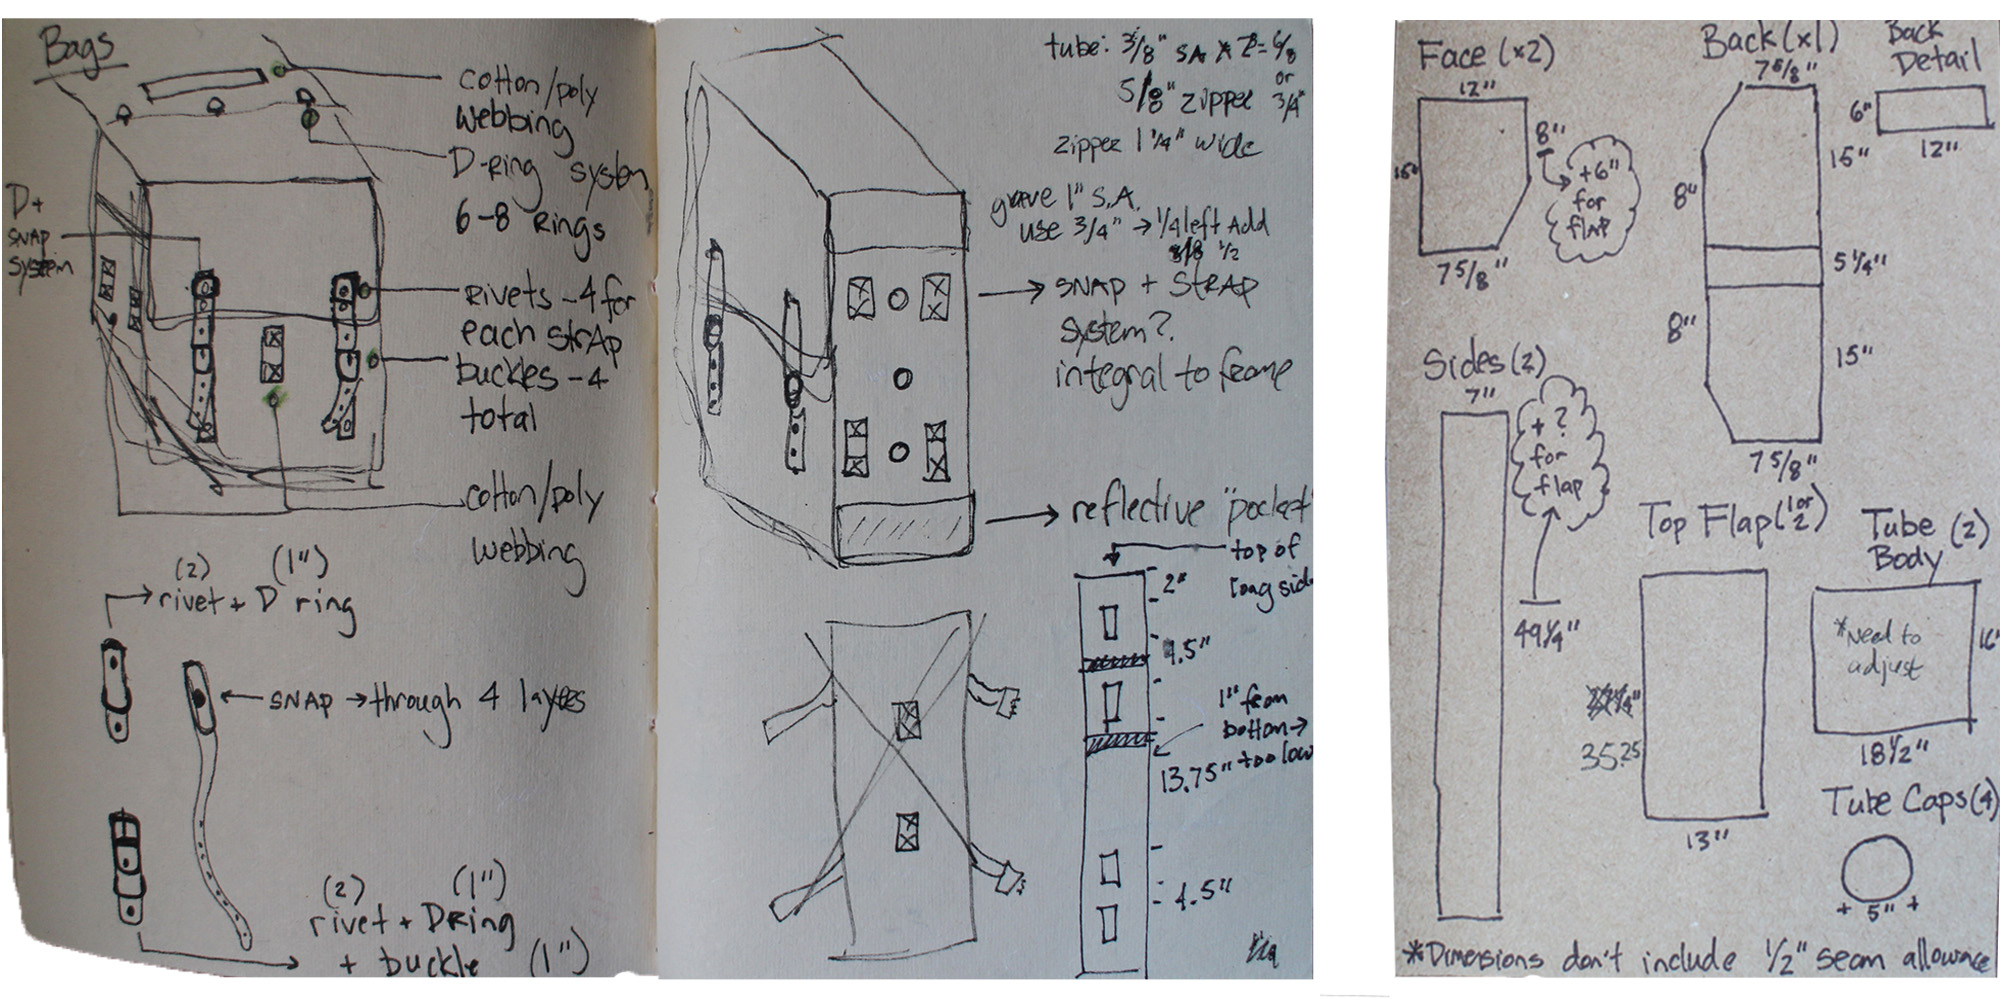 Bags
cotton/poly
webbing
D-ring system
6-8 rings
D+
SNAP
system
rivets -4 for
each strap
buckles -4
total
cotton/poly
webbing
(2) (1")
rivet + D ring
SNAP → through 4 layers
(2) (1")
rivet + D ring
+ buckle (1")
tube: 3/8" SA x 2 = 6/8
or
5/8" zipper 3/4"
zipper 1 1/4" wide
1" S.A.
use 3/4" → 1/4 left Add
1/2
SNAP + Strap
system?
integral to frame
reflective "pocket"
top of
long side
2"
4.5"
1" from
bottom →
too low
13.75"
4.5"
Face (x2)
12"
8"
+6"
for
flap
7 5/8"
Back (x1)
7 5/8"
15"
8"
5 1/4"
8"
15"
7 5/8"
Back
Detail
6"
12"
Sides (2)
7"
+ ?
for
flap
49 1/4"
Top Flap (1 or 2)
35.25
13"
Tube (2)
Body
*Need to
adjust
16"
18 1/2"
Tube Caps (4)
+ 5" +
*Dimensions don't include 1/2" seam allowance